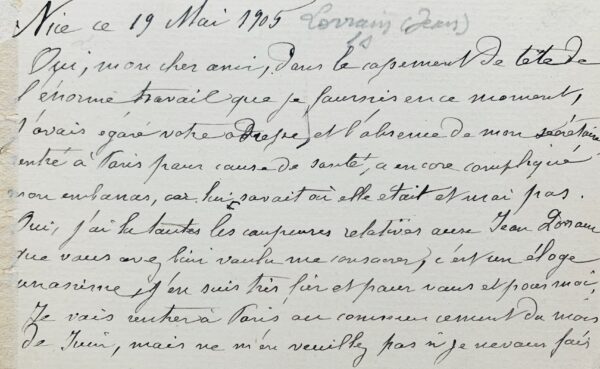 Nice ce 19 Mai 1905 Lorrain (Jean)
Oui, mon cher ami, dans le cassement de tête de
l'énorme travail que je fournis en ce moment,
j'avais égaré votre adresse, et l'absence de mon secrétaire
entré à Paris pour cause de santé, a encore compliqué
mon embarras, car lui savait où elle était et moi pas.
Oui, j'ai lu toutes les coupures relatives au Jean Lorrain
que vous avez bien voulu me consacrer, c'est un éloge
unanime, j'en suis très fier et pour vous et pour moi,
Je vais rentrer à Paris au commencement du mois
de Juin, mais ne m'en veuillez pas si je ne vous fais